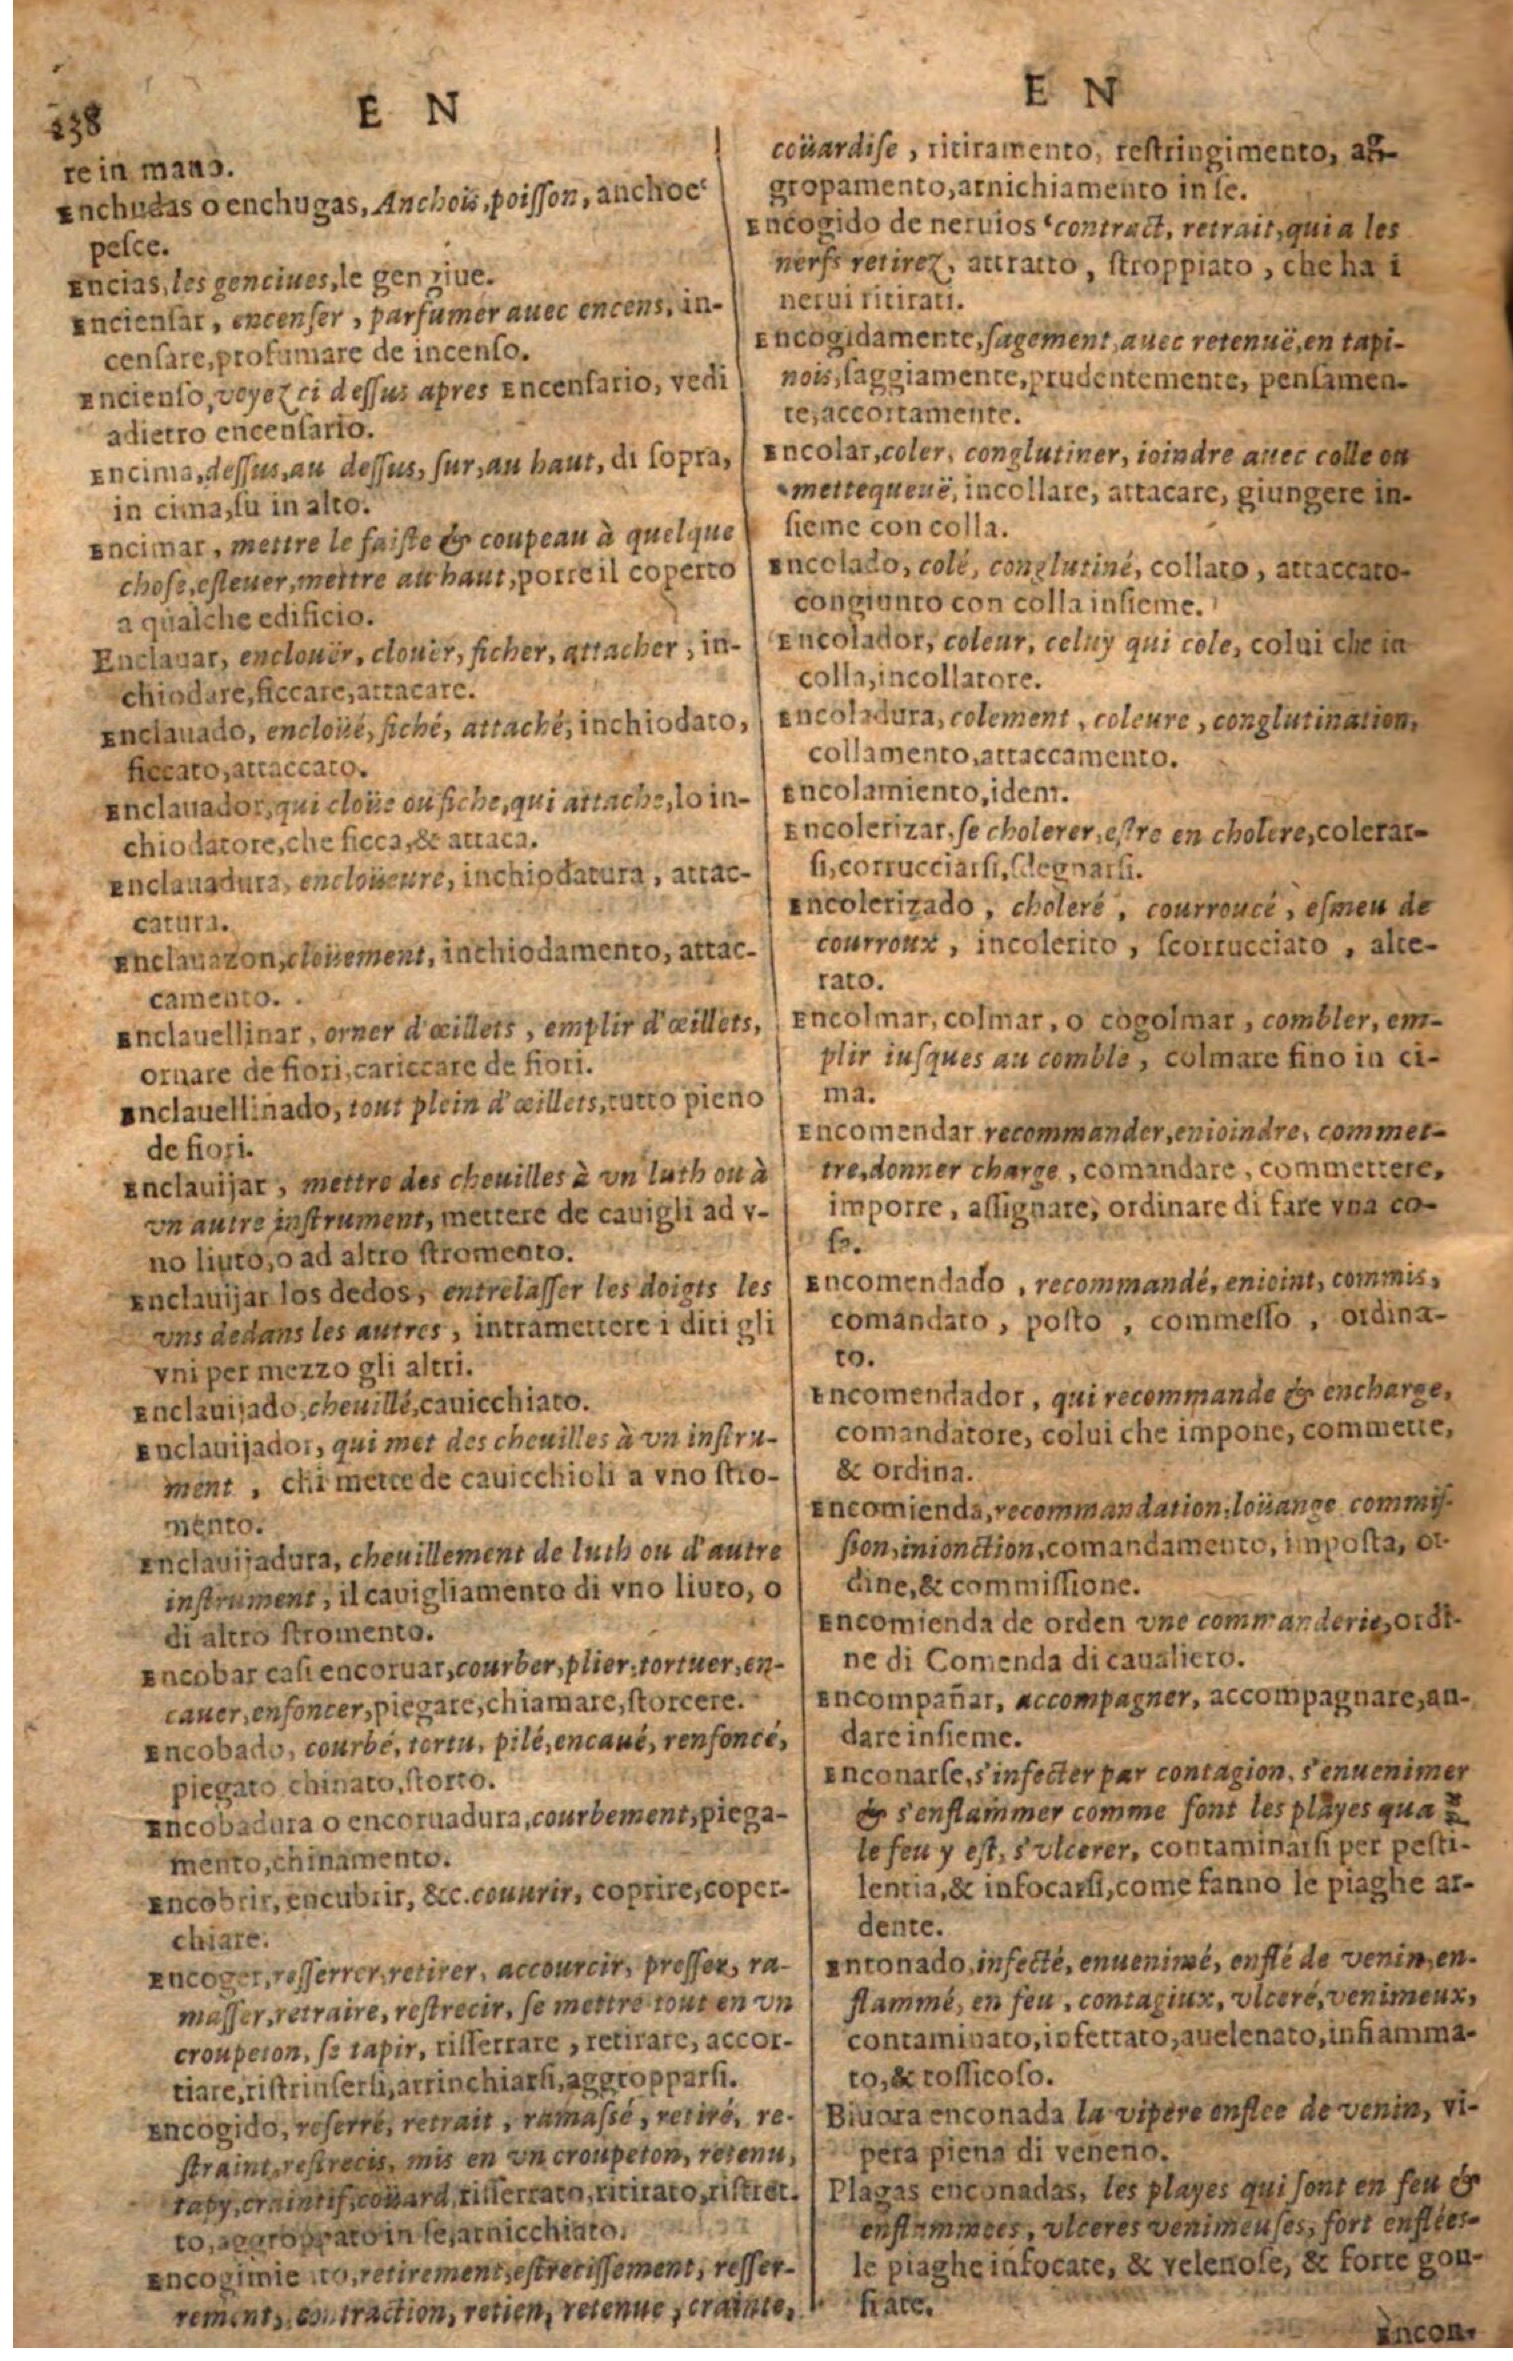 238
E N
re in mano.
Enchudas o enchugas, Anchois, poisson, anchoe
pesce.
Encias, les genciues, le gengiue.
Enciensar, encenser, parfumer auec encens, in-
censare, profumare de incenso.
Encienso, voyez ci dessus apres Encensario, vedi
adietro encensario.
Encima, dessus, au dessus, sur, au haut, di sopra,
in cima, su in alto.
Encimar, mettre le faiste & coupeau à quelque
chose, esleuer, mettre au haut, porre il coperto
a qualche edificio.
Enclauar, enclouër, clouër, ficher, attacher, in-
chiodare, ficcare, attacare.
Enclauado, encloüé, fiché, attaché, inchiodato,
ficcato, attaccato.
Enclauador, qui cloüe ou fiche, qui attache, lo in-
chiodatore, che ficca, & attaca.
Enclauadura, encloüeure, inchiodatura, attac-
catura.
Enclauazon, clouement, inchiodamento, attac-
camento.
Enclauellinar, orner d'œillets, emplir d'œillets,
ornare de fiori, cariccare de fiori.
Enclauellinado, tout plein d'œillets, tutto pieno
de fiori.
Enclauijar, mettre des cheuilles à vn luth ou à
vn autre instrument, mettere de cauigli ad v-
no liuto, o ad altro stromento.
Enclauijar los dedos, entrelasser les doigts les
vns dedans les autres, intramettere i diti gli
vni per mezzo gli altri.
Enclauijado, cheuillé, cauicchiato.
Enclauijador, qui met des cheuilles à vn instru-
ment, chi mette de cauicchioli a vno stro-
mento.
Enclauijadura, cheuillement de luth ou d'autre
instrument, il cauigliamento di vno liuto, o
di altro stromento.
Encobar casi encoruar, courber, plier, tortuer, en-
cauer, enfoncer, piegare, chiamare, storcere.
Encobado, courbé, tortu, pilé, encaué, renfoncé,
piegato chinato, storto.
Encobadura o encoruadura, courbement, piega-
mento, chinamento.
Encobrir, encubrir, &c. couurir, coprire, coper-
chiare.
Encoger, resserrer, retirer, accourcir, presser, ra-
masser, retraire, restrecir, se mettre tout en vn
croupeton, se tapir, risserrare, retirare, accor-
tiare, ristrinsersi, arrinchiarsi, aggropparsi.
Encogido, reserré, retrait, ramassé, retiré, re-
straint, restrecis, mis en vn croupeton, retenu,
tapy, craintif, coüard, risserrato, ritirato, ristret-
to, aggroppato in se, arnicchiato.
Encogimiento, retirement, estrecissement, resser-
rement, contraction, retien, retenue, crainte,
E N
coüardise, ritiramento, restringimento, ag-
gropamento, arnichiamento in se.
Encogido de neruios contract, retrait, qui a les
nerfs retirez, attratto, stroppiato, che ha i
nerui ritirati.
Encogidamente, sagement, auec retenuë, en tapi-
nois, saggiamente, prudentemente, pensamen-
te, accortamente.
Encolar, coler, conglutiner, ioindre auec colle ou
mettequeuë, incollare, attacare, giungere in-
sieme con colla.
Encolado, colé, conglutiné, collato, attaccato-
congiunto con colla insieme.
Encolador, coleur, celuy qui cole, colui che in
colla, incollatore.
Encoladura, colement, coleure, conglutination,
collamento, attaccamento.
Encolamiento, idem.
Encolerizar, se cholerer, estre en cholere, colerar-
si, corrucciarsi, sdegnarsi.
Encolerizado, choleré, courroucé, esmeu de
courroux, incolerito, scorrucciato, alte-
rato.
Encolmar, colmar, o cogolmar, combler, em-
plir iusques au comble, colmare fino in ci-
ma.
Encomendar recommander, enioindre, commet-
tre, donner charge, comandare, commettere,
imporre, assignare, ordinare di fare vna co-
sa.
Encomendado, recommandé, enioint, commis,
comandato, posto, commesso, ordina-
to.
Encomendador, qui recommande & encharge,
comandatore, colui che impone, commette,
& ordina.
Encomienda, recommandation, loüange commis-
sion, inionction, comandamento, imposta, or-
dine, & commissione.
Encomienda de orden vne commanderie, ordi-
ne di Comenda di caualiero.
Encompañar, accompagner, accompagnare, an-
dare insieme.
Enconarse, s'infecter par contagion, s'enuenimer
& s'enflammer comme font les playes qua
le feu y est, s'vlcerer, contaminarsi per pesti-
lentia, & infocarsi, come fanno le piaghe ar-
dente.
Entonado, infecté, enuenimé, enflé de venin, en-
flammé, en feu, contagiux, vlceré, venimeux,
contaminato, infettato, auelenato, infiamma-
to, & tossicoso.
Biuora enconada la vipere enflee de venin, vi-
pera piena di veneno.
Plagas enconadas, les playes qui sont en feu &
enflammees, vlceres venimeuses, fort enflées-
le piaghe infocate, & velenose, & forte gon-
fiate.
Encon-